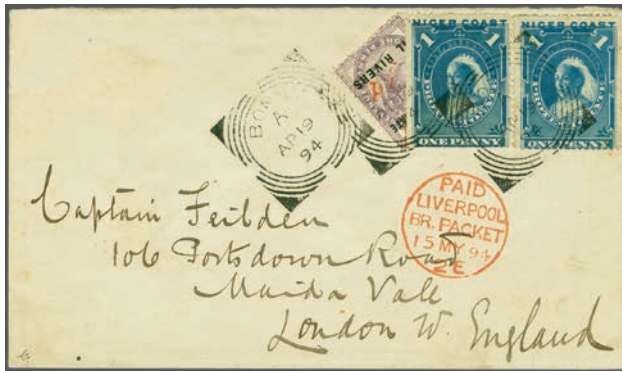 NIGER COAST
1 1
ONE PENNY
NIGER COAST
1 1
ONE PENNY
L RIVERS
BONNY
A
AP 19
94
PAID
LIVERPOOL
BR. PACKET
15 MY 94
2E
Captain Feilden
106 Portsdown Road
Maida Vale
London W. England